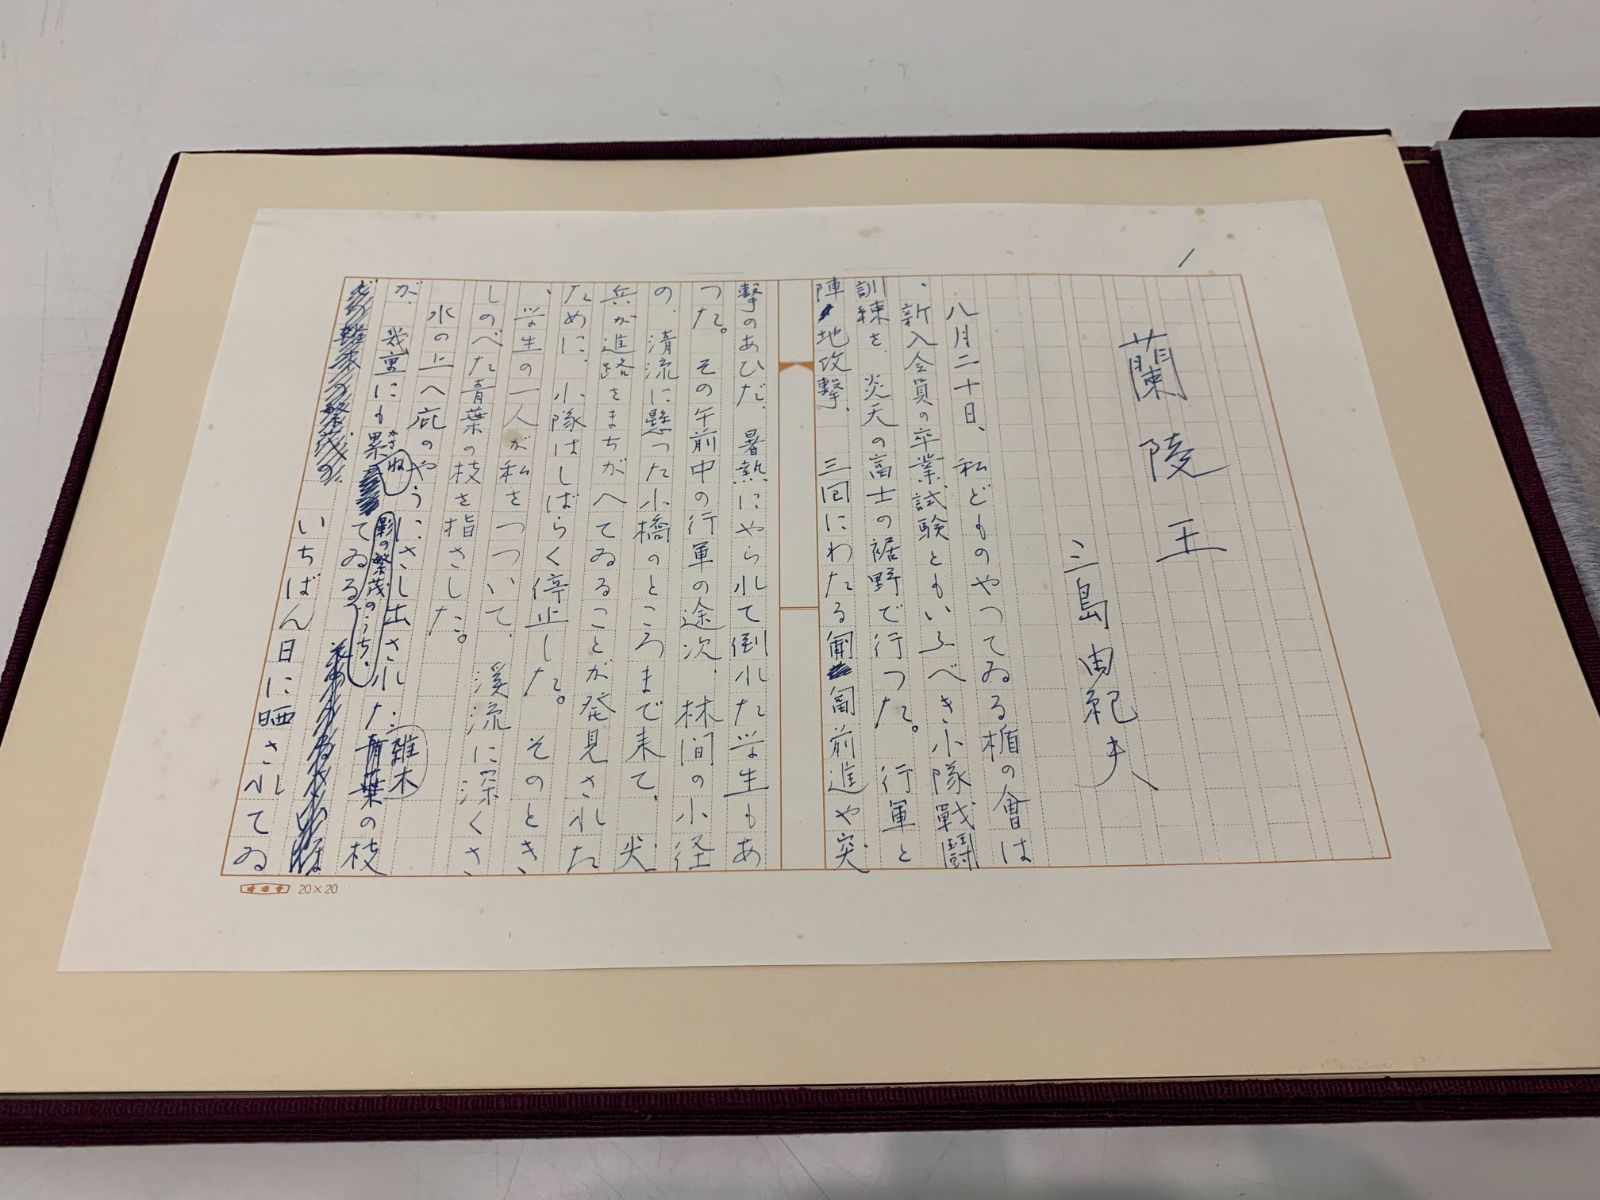 蘭陵王
三島由紀夫
八月二十日、私どものやつてゐる楯の會は
、新入会員の卒業試験ともいふべき小隊戦闘
訓練を、炎天の富士の裾野で行つた。行軍と
陣地攻撃、三回にわたる匍匐前進や突
撃のあひだ、暑熱にやられて倒れた学生もあ
つた。その午前中の行軍の途次、林間の小径
の、清流に懸つた小橋のところまで来て、尖
兵が進路をまちがへてゐることが発見された
ために、小隊はしばらく停止した。そのとき
、学生の一人が私をつついて、溪流に深くさ
しのべた青葉の枝を指さした。
水の上へ庇のやうにさし出された雑木青葉の枝
が、幾重にも累かさねてゐる影の繁茂のうち、
いちばん日に晒されてゐ
20×20